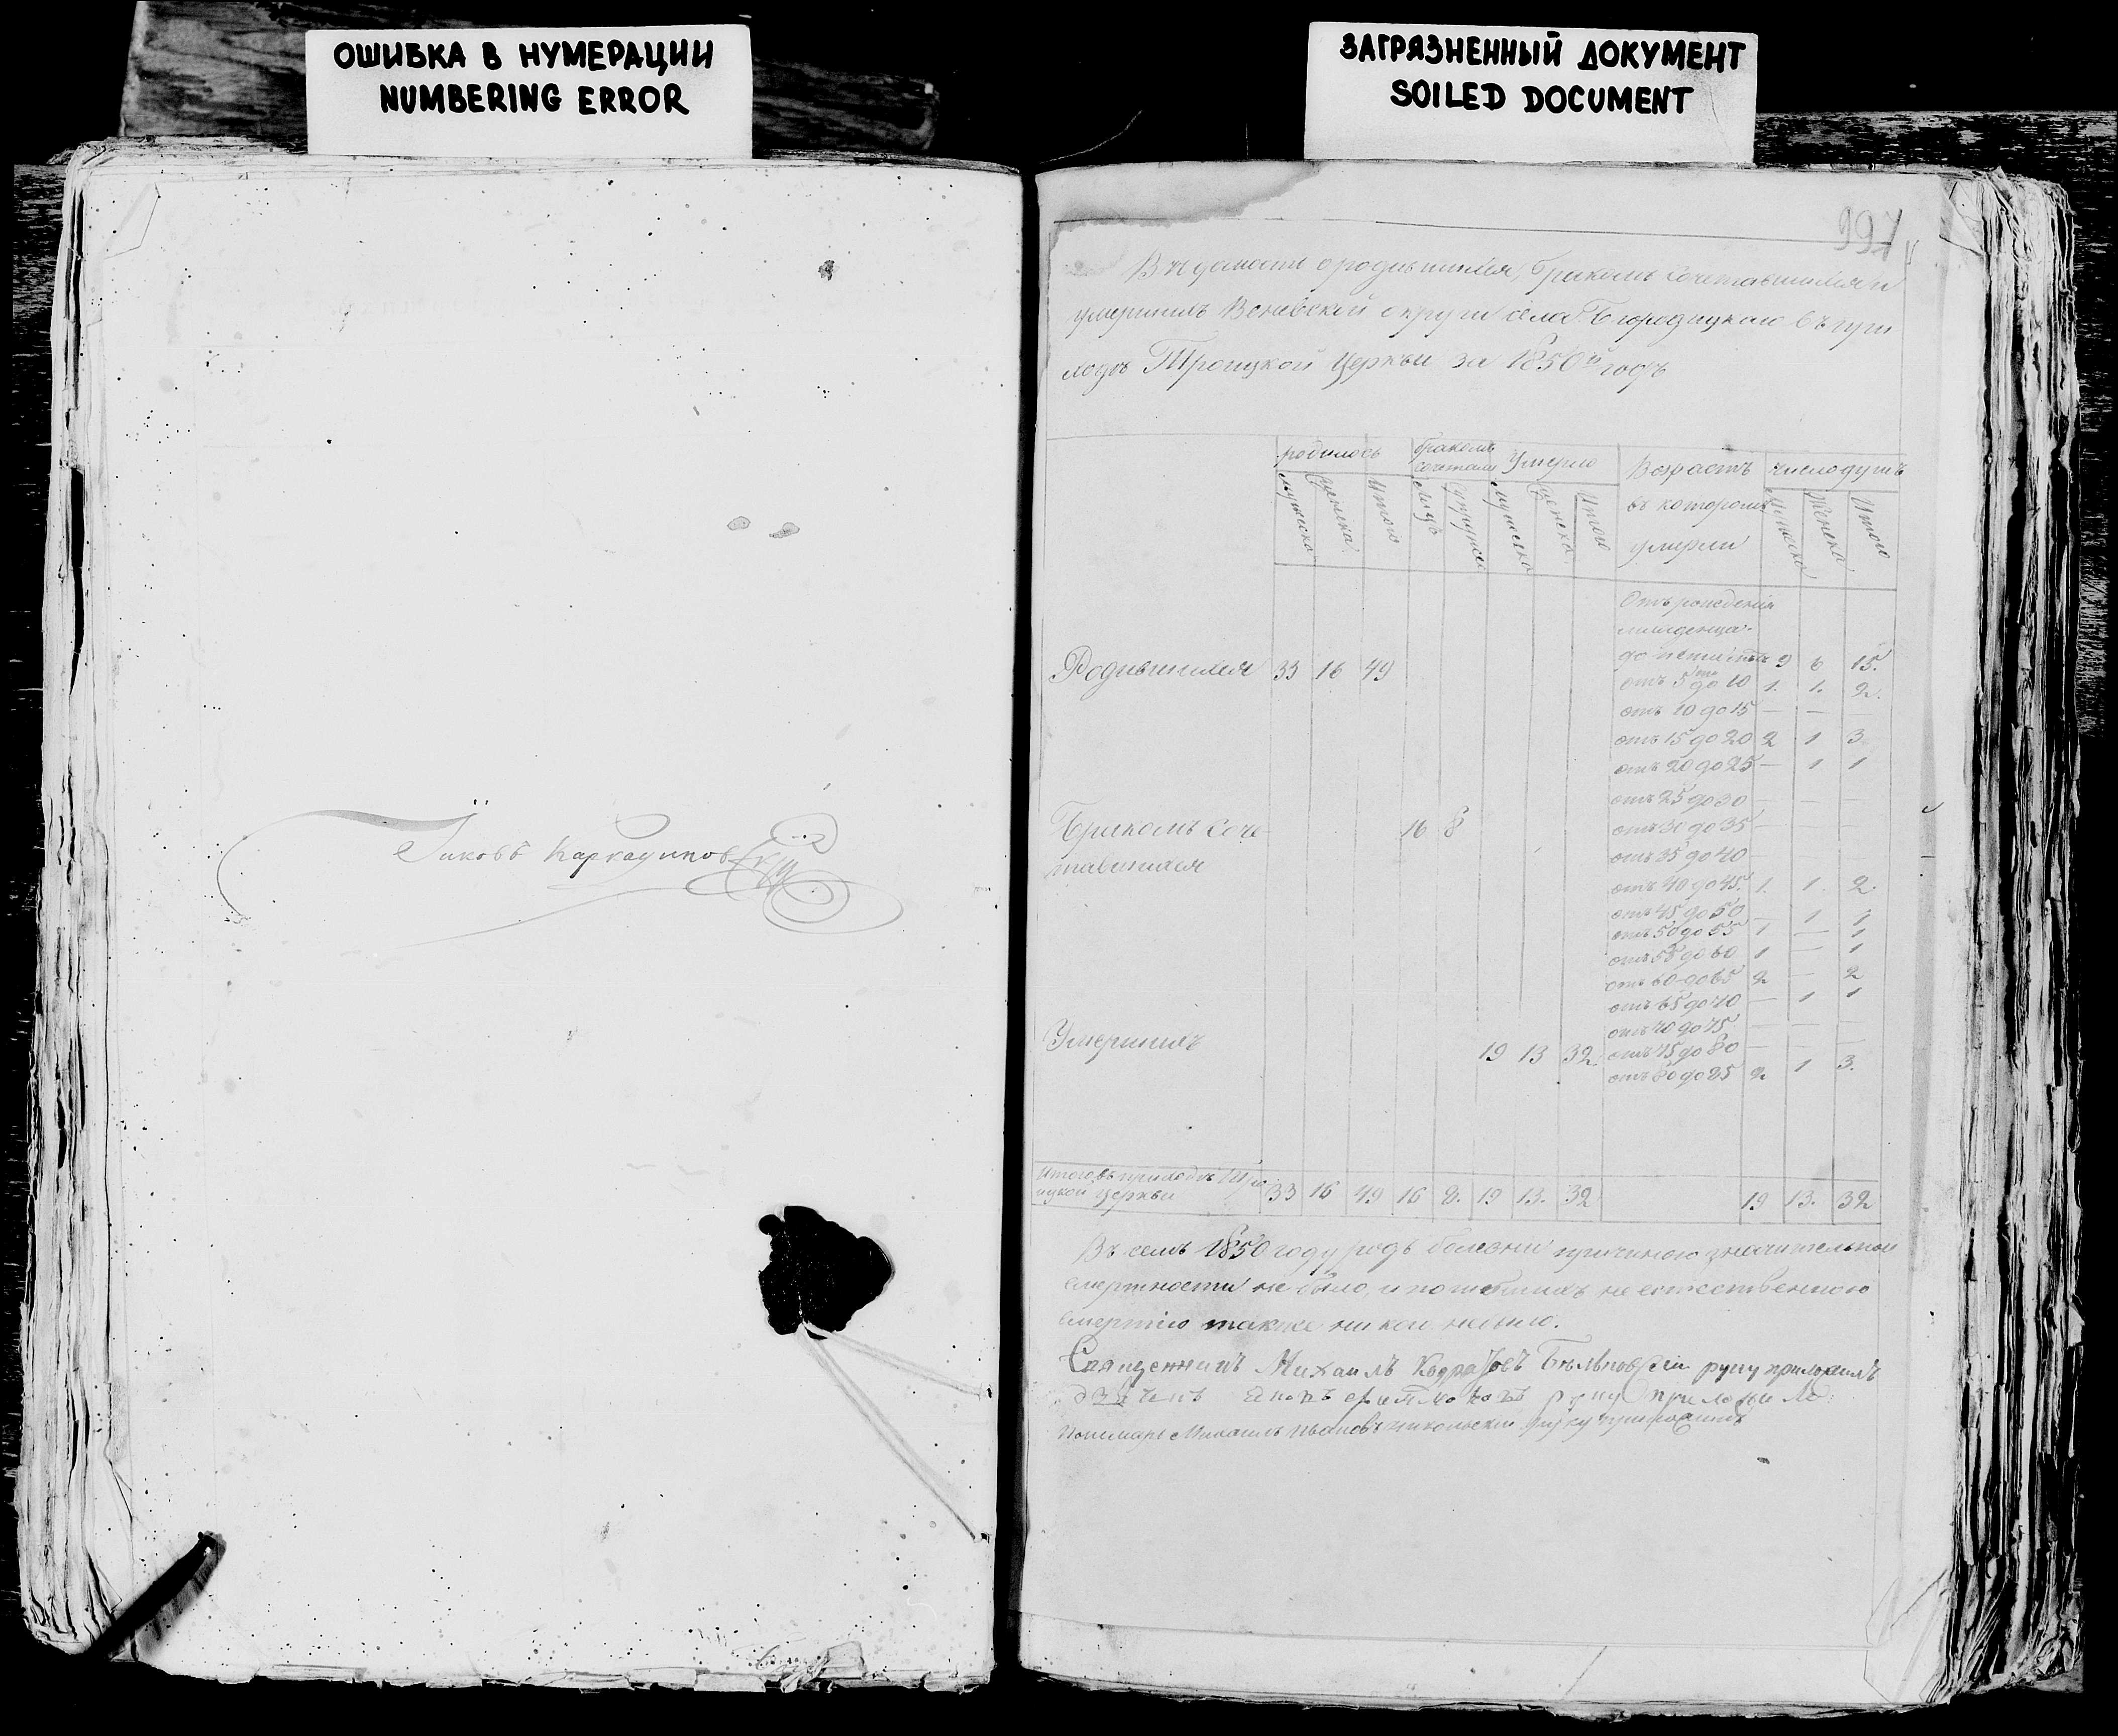 ОШИБКА В НУМЕРАЦИИ
NUMBERING ERROR
ЗАГРЯЗНЕННЫЙ ДОКУМЕНТ
SOILED DOCUMENT
997
Вѣдомость о родившихся, бракомъ сочетавшихся и
умершихъ Веневской округи села Богородицкаго
Троицкой Церкви за 1850й годъ
родилось бракомъ сочеталис Умерло Возрастъ число душъ
мужеска женска Итого лицъ супружес мужеска женска Итого въ которомъ умерли мужеска женска Итого
Отъ рожденія
младенца
Родившихся 33 16 49 до пяти лѣтъ 9 6 15.
отъ 5ти до 10 1. 1. 2.
отъ 10 до 15 — — —
отъ 15 до 20 2 1 3
отъ 20 до 25 — 1 1
отъ 25 до 30 — — —
Бракомъ соче- 16 8 отъ 30 до 35 — — —
тавшихся отъ 35 до 40 — — —
отъ 40 до 45. 1. 1. 2.
отъ 45 до 50 — 1 1
отъ 50 до 55 1 — 1
отъ 55 до 60 1 — 1
отъ 60 до 65 2 — 2
отъ 65 до 70 — 1 1
отъ 70 до 75 — — —
Умершихъ 19 13 32 отъ 75 до 80 — — —
отъ 80 до 85 2 1 3.
Итого въ приходѣ Трои-
цкой Церкви 33 16 49 16 8. 19 13. 32 19 13. 32
Въ семъ 1850 году родъ болезни причиною значительной
смертности не было, и погибшихъ не естественною
смертію также никои небыло.
Священникъ Михаилъ руку приложилъ
руку приложилъ
Пономарь Михаилъ Ивановъ Никольски руку приложилъ
Яковъ